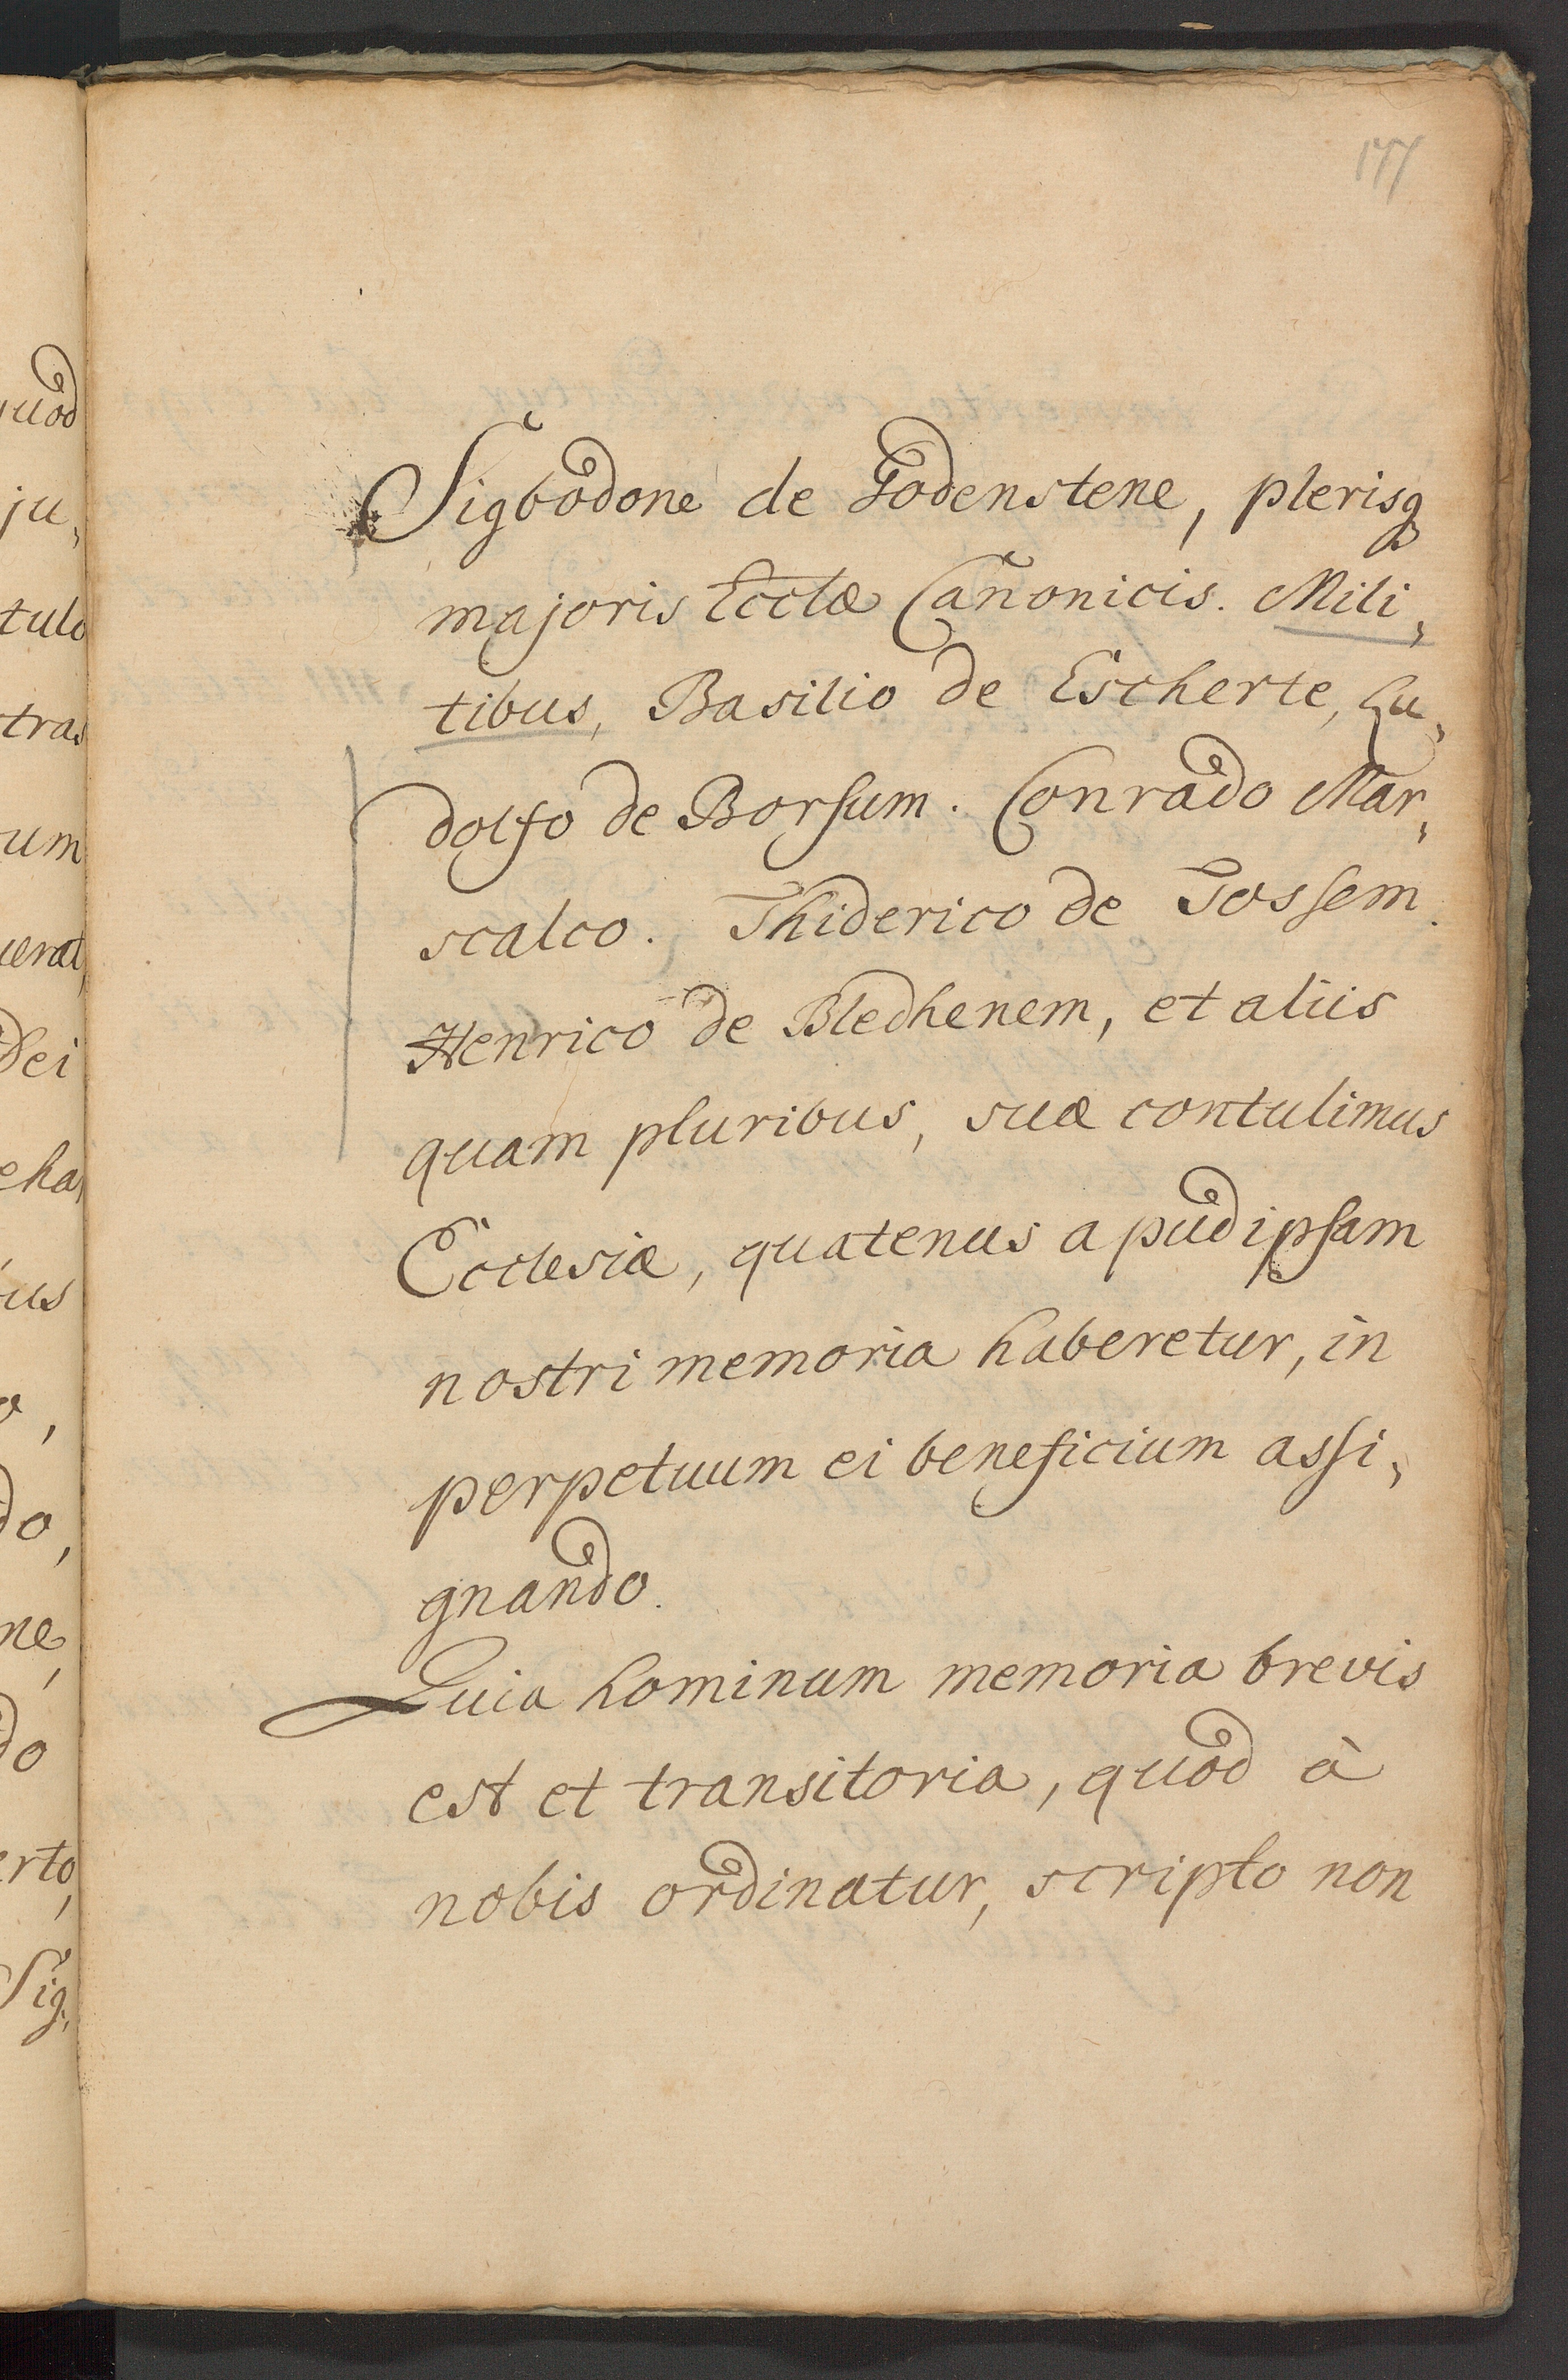 Sigbodone de Godenstene, plerisq
majoris Ecclæ Cañonicis. Mili,
tibus, Basilio de Escherte, Lu,
dolfo de Borsum. Conrado Mar,
scalco. Thiderico de Tossem.
Henrico de Bledhenem, et aliis
quam pluribus, suæ contulimus
Ecclesiæ, quatenus apud ipsam
nostri memoria haberetur, in
perpetuum ei beneficium assi,
gnando.
Quia hominum memoria brevis
est et transitoria, quod à
nobis ordinatur, scripto non